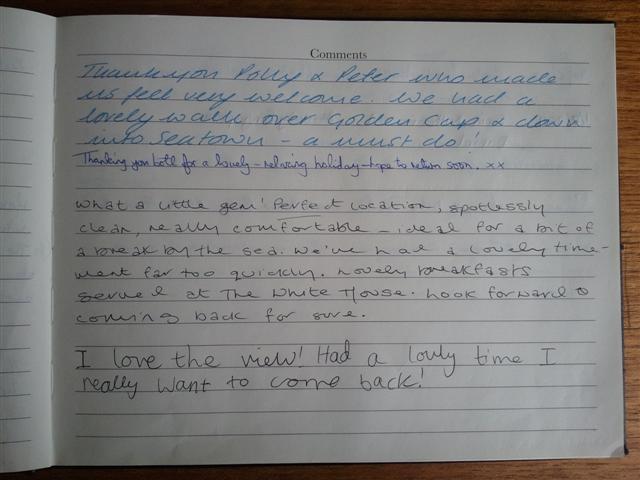 Comments
Thankyou Polly & Peter who made
us feel very welcome. We had a
lovely walk over Golden Cap & down
into Seatown - a must do!
Thanking you both for a lovely - relaxing holiday - hope to return soon. xx
What a little gem! Perfect location, spotlessly
clean, really comfortable - ideal for a bit of
a break by the sea. We've had a lovely time -
went far too quickly. Lovely breakfasts
served at The White House. Look forward to
coming back for sure.
I love the view! Had a lovly time I
really want to come back!